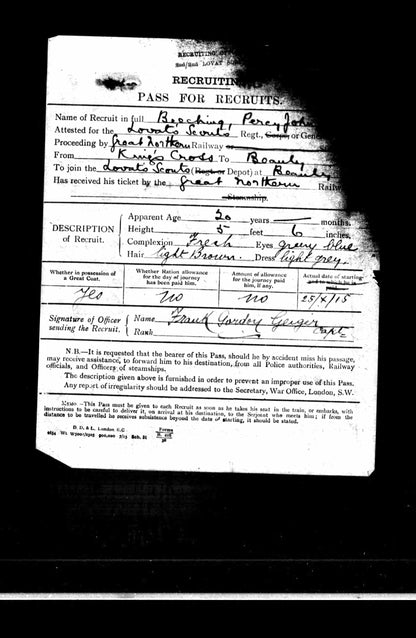 RECRUITING
2nd/2nd LOVAT
RECRUITIN
PASS FOR RECRUITS.
Name of Recruit in full Beeching, Percy John
Attested for the Lovats Scouts Regt., Corps, or Gene
Proceeding by Great Northern Railway or
From Kings Cross To Beauly
To join the Lovats Scouts (Regt. or Depot) at Beauly
Has received his ticket by the Great Northern Railw
Steamship.
DESCRIPTION of Recruit.
Apparent Age 20 years — months.
Height 5 feet 6 inches.
Complexion Fresh Eyes grey blue
Hair light Brown. Dress light grey.
Whether in possession of a Great Coat. Yes
Whether Ration allowance for the day of journey has been paid him. no
Amount of allowance for the journey paid him, if any. no
Actual date of starting and to which he is paid. 25/4/15
Signature of Officer sending the Recruit.
Name Frank Gordon Geiger
Rank Capt
N.B.—It is requested that the bearer of this Pass, should he by accident miss his passage,
may receive assistance, to forward him to his destination, from all Police authorities, Railway
officials, and Officers of steamships.
The description given above is furnished in order to prevent an improper use of this Pass.
Any report of irregularity should be addressed to the Secretary, War Office, London, S.W.
MEMO.—This Pass must be given to each Recruit as soon as he takes his seat in the train, or embarks, with
instructions to be careful to deliver it, on arrival at his destination, to the Serjeant who meets him; if from the
distance to be travelled he receives subsistence beyond the date of starting, it should be stated.
D. D. & L., London E.C.
Forms